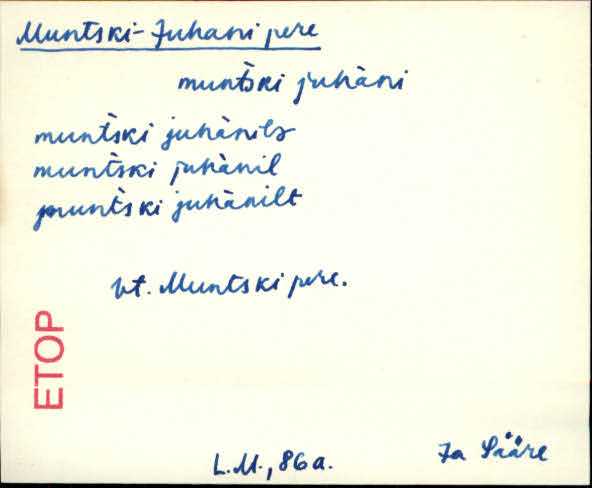 Muntski-Juhani pere
munt̀ski juhàni
munt̀ski juhànilə
munt̀ski juhànil
munt̀ski juhànilt
vt. Muntski pere.
ETOP
L.M., 86a.
Ja Sääre